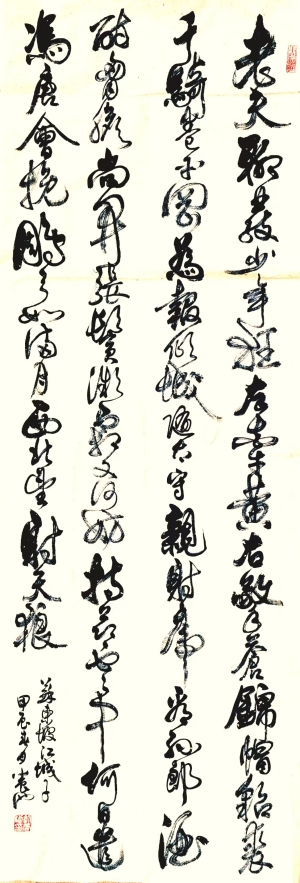 老夫聊發少年狂左牽黃右擎蒼錦帽貂裘
千騎卷平岡為報傾城隨太守親射虎看孫郎酒
酣胸膽尚開張鬢微霜又何妨持節雲中何日遣
馮唐會挽鵰弓如滿月西北望射天狼
蘇東坡江城子
甲辰春月